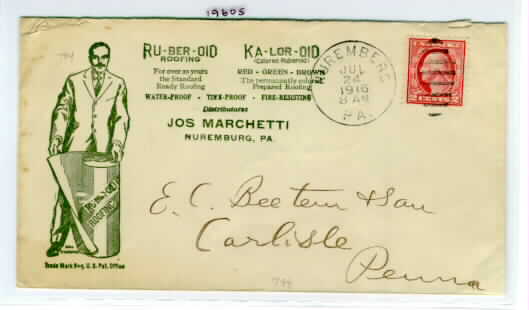 19605
744
RU-BER-OID
ROOFING
For over 20 years
the Standard
Ready Roofing
KA-LOR-OID
(Colored Ruberoid)
RED - GREEN - BROWN
The permanently colored
Prepared Roofing
WATER-PROOF - TIME-PROOF - FIRE-RESISTING
Distributor
JOS MARCHETTI
NUREMBURG, PA.
NUREMBERG
JUL
24
1916
8 AM
PA.
2 CENTS 2
RU-BER-OID
ROOFING
Trade Mark Reg. U.S. Pat. Office
E. C. Beetem & Son
Carlisle
Penna
744